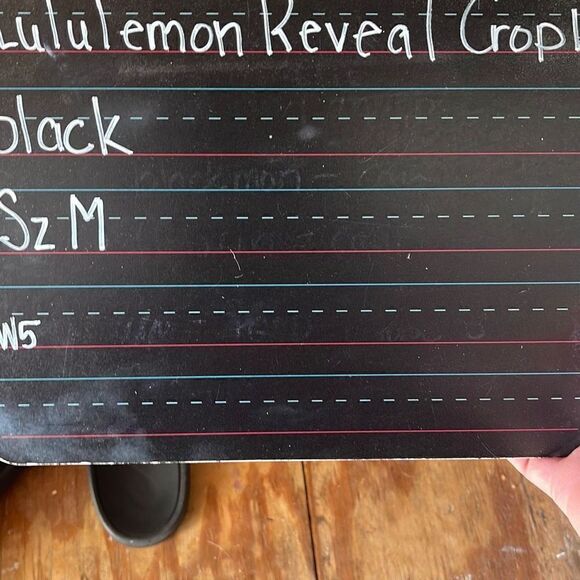 Lululemon Reveal Crop
black
Sz M
W5